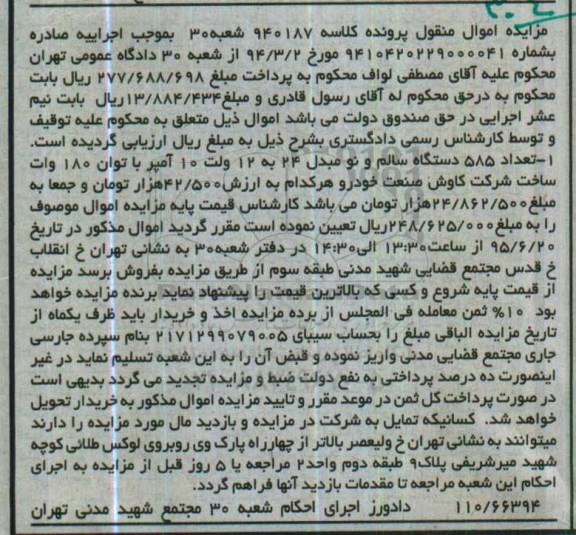 مزایده اموال منقول پرونده کلاسه ۹۴۰۱۸۷ شعبه۳۰ بموجب اجراییه صادره
بشماره ۹۴۱۰۴۲۰۲۲۹۰۰۰۰۴۱ مورخ ۹۴/۳/۲ از شعبه ۳۰ دادگاه عمومی تهران
محکوم علیه آقای مصطفی لواف محکوم به پرداخت مبلغ ۲۷۷/۶۸۸/۶۹۸ ریال بابت
محکوم به درحق محکوم له آقای رسول قادری و مبلغ۱۳/۸۸۴/۴۳۴ریال بابت نیم
عشر اجرایی در حق صندوق دولت می باشد اموال ذیل متعلق به محکوم علیه توقیف
و توسط کارشناس رسمی دادگستری بشرح ذیل به مبلغ ریال ارزیابی گردیده است.
۱-تعداد ۵۸۵ دستگاه سالم و نو مبدل ۲۴ به ۱۲ ولت ۱۰ آمپر با توان ۱۸۰ وات
ساخت شرکت کاوش صنعت خودرو هرکدام به ارزش۴۲/۵۰۰هزار تومان و جمعا به
مبلغ۲۴/۸۶۲/۵۰۰هزار تومان می باشد کارشناس قیمت پایه مزایده اموال موصوف
را به مبلغ۲۴۸/۶۲۵/۰۰۰ریال تعیین نموده است مقرر گردید اموال مذکور در تاریخ
۹۵/۶/۲۰ از ساعت۱۳:۳۰ الی۱۴:۳۰ در دفتر شعبه۳۰ به نشانی تهران خ انقلاب
خ قدس مجتمع قضایی شهید مدنی طبقه سوم از طریق مزایده بفروش برسد مزایده
از قیمت پایه شروع و کسی که بالاترین قیمت را پیشنهاد نماید برنده مزایده خواهد
بود ۱۰% ثمن معامله فی المجلس از برده مزایده اخذ و خریدار باید ظرف یکماه از
تاریخ مزایده الباقی مبلغ را بحساب سیبای ۲۱۷۱۲۹۹۰۷۹۰۰۵ بنام سپرده جارسی
جاری مجتمع قضایی مدنی واریز نموده و قبض آن را به این شعبه تسلیم نماید در غیر
اینصورت ده درصد پرداختی به نفع دولت ضبط و مزایده تجدید می گردد بدیهی است
در صورت پرداخت کل ثمن در موعد مقرر و تایید مزایده اموال مذکور به خریدار تحویل
خواهد شد. کسانیکه تمایل به شرکت در مزایده و بازدید مال مورد مزایده را دارند
میتوانند به نشانی تهران خ ولیعصر بالاتر از چهارراه پارک وی روبروی لوکس طلائی کوچه
شهید میرشریفی پلاک۹ طبقه دوم واحد۲ مراجعه یا ۵ روز قبل از مزایده به اجرای
احکام این شعبه مراجعه تا مقدمات بازدید آنها فراهم گردد.
۱۱۰/۶۶۳۹۴ دادورز اجرای احکام شعبه ۳۰ مجتمع شهید مدنی تهران